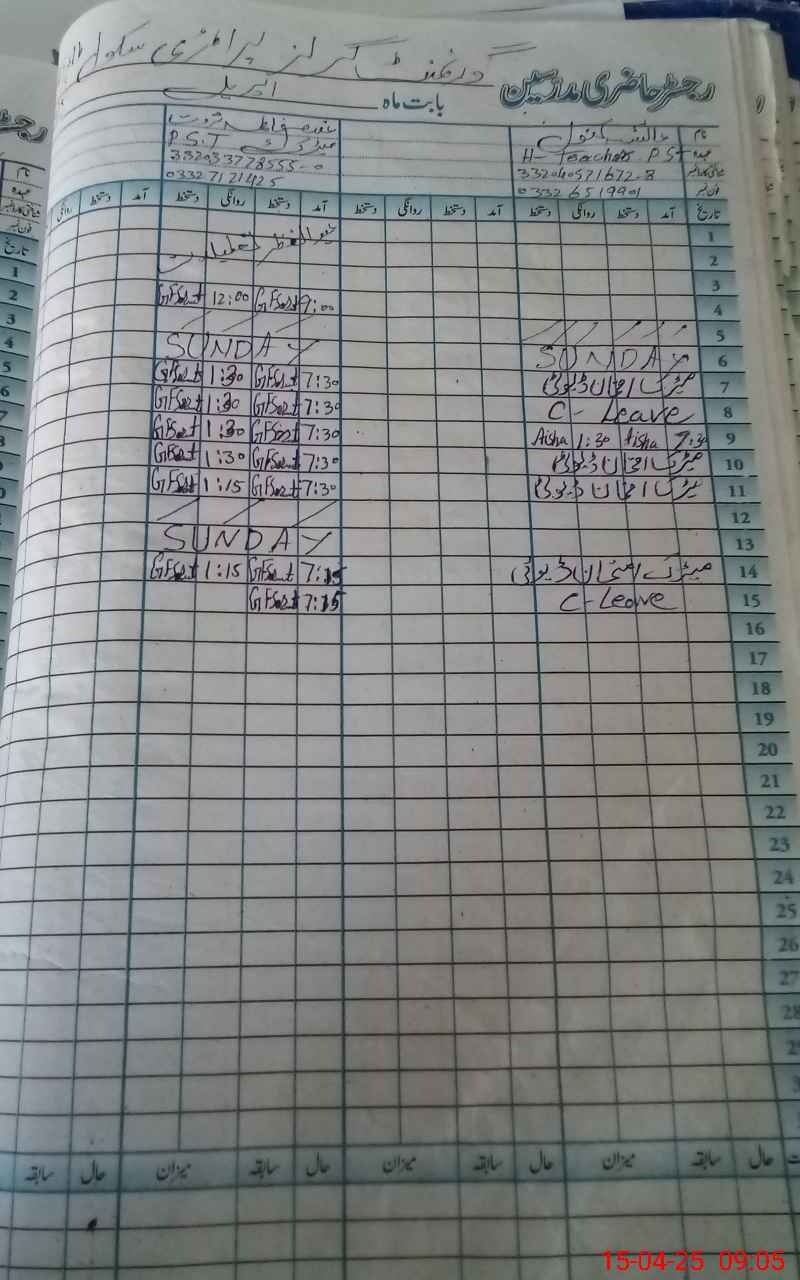 گورنمنٹ گرلز پرائمری سکول
رجسٹر حاضری مدرسین
بابت ماہ اپریل
نام عائشہ کنول
عہدہ H- Teacher PST
شناختی کارڈ نمبر 33204
فون نمبر 0332 6519901
فاطمہ ثروت
P.S.T
333203
03327121425
تاریخ آمد دستخط روانگی دستخط آمد دستخط روانگی دستخط آمد دستخط روانگی دستخط آمد دستخط روانگی
1
2 عید الفطر تعطیلات
3
4 9:00 12:00
5
6 SUNDAY SUNDAY
7 میٹرک امتحان ڈیوٹی 7:30 1:30
8 C- Leave 7:30 1:30
9 7:30 Aisha 1:30 Aisha 7:30 1:30
10 میٹرک امتحان ڈیوٹی 7:30 1:30
11 میٹرک امتحان ڈیوٹی 7:30 1:15
12
13 SUNDAY
14 میٹرک امتحان ڈیوٹی 7:15 1:15
15 C- Leave 7:15
16
17
18
19
20
21
22
23
24
25
26
27
28
سابقہ حال میزان سابقہ حال میزان سابقہ حال میزان سابقہ حال
رجسٹر
نام
عہدہ
شناختی کارڈ نمبر
فون نمبر
تاریخ
1
2
3
4
5
6
7
8
9
15-04-25 09:05